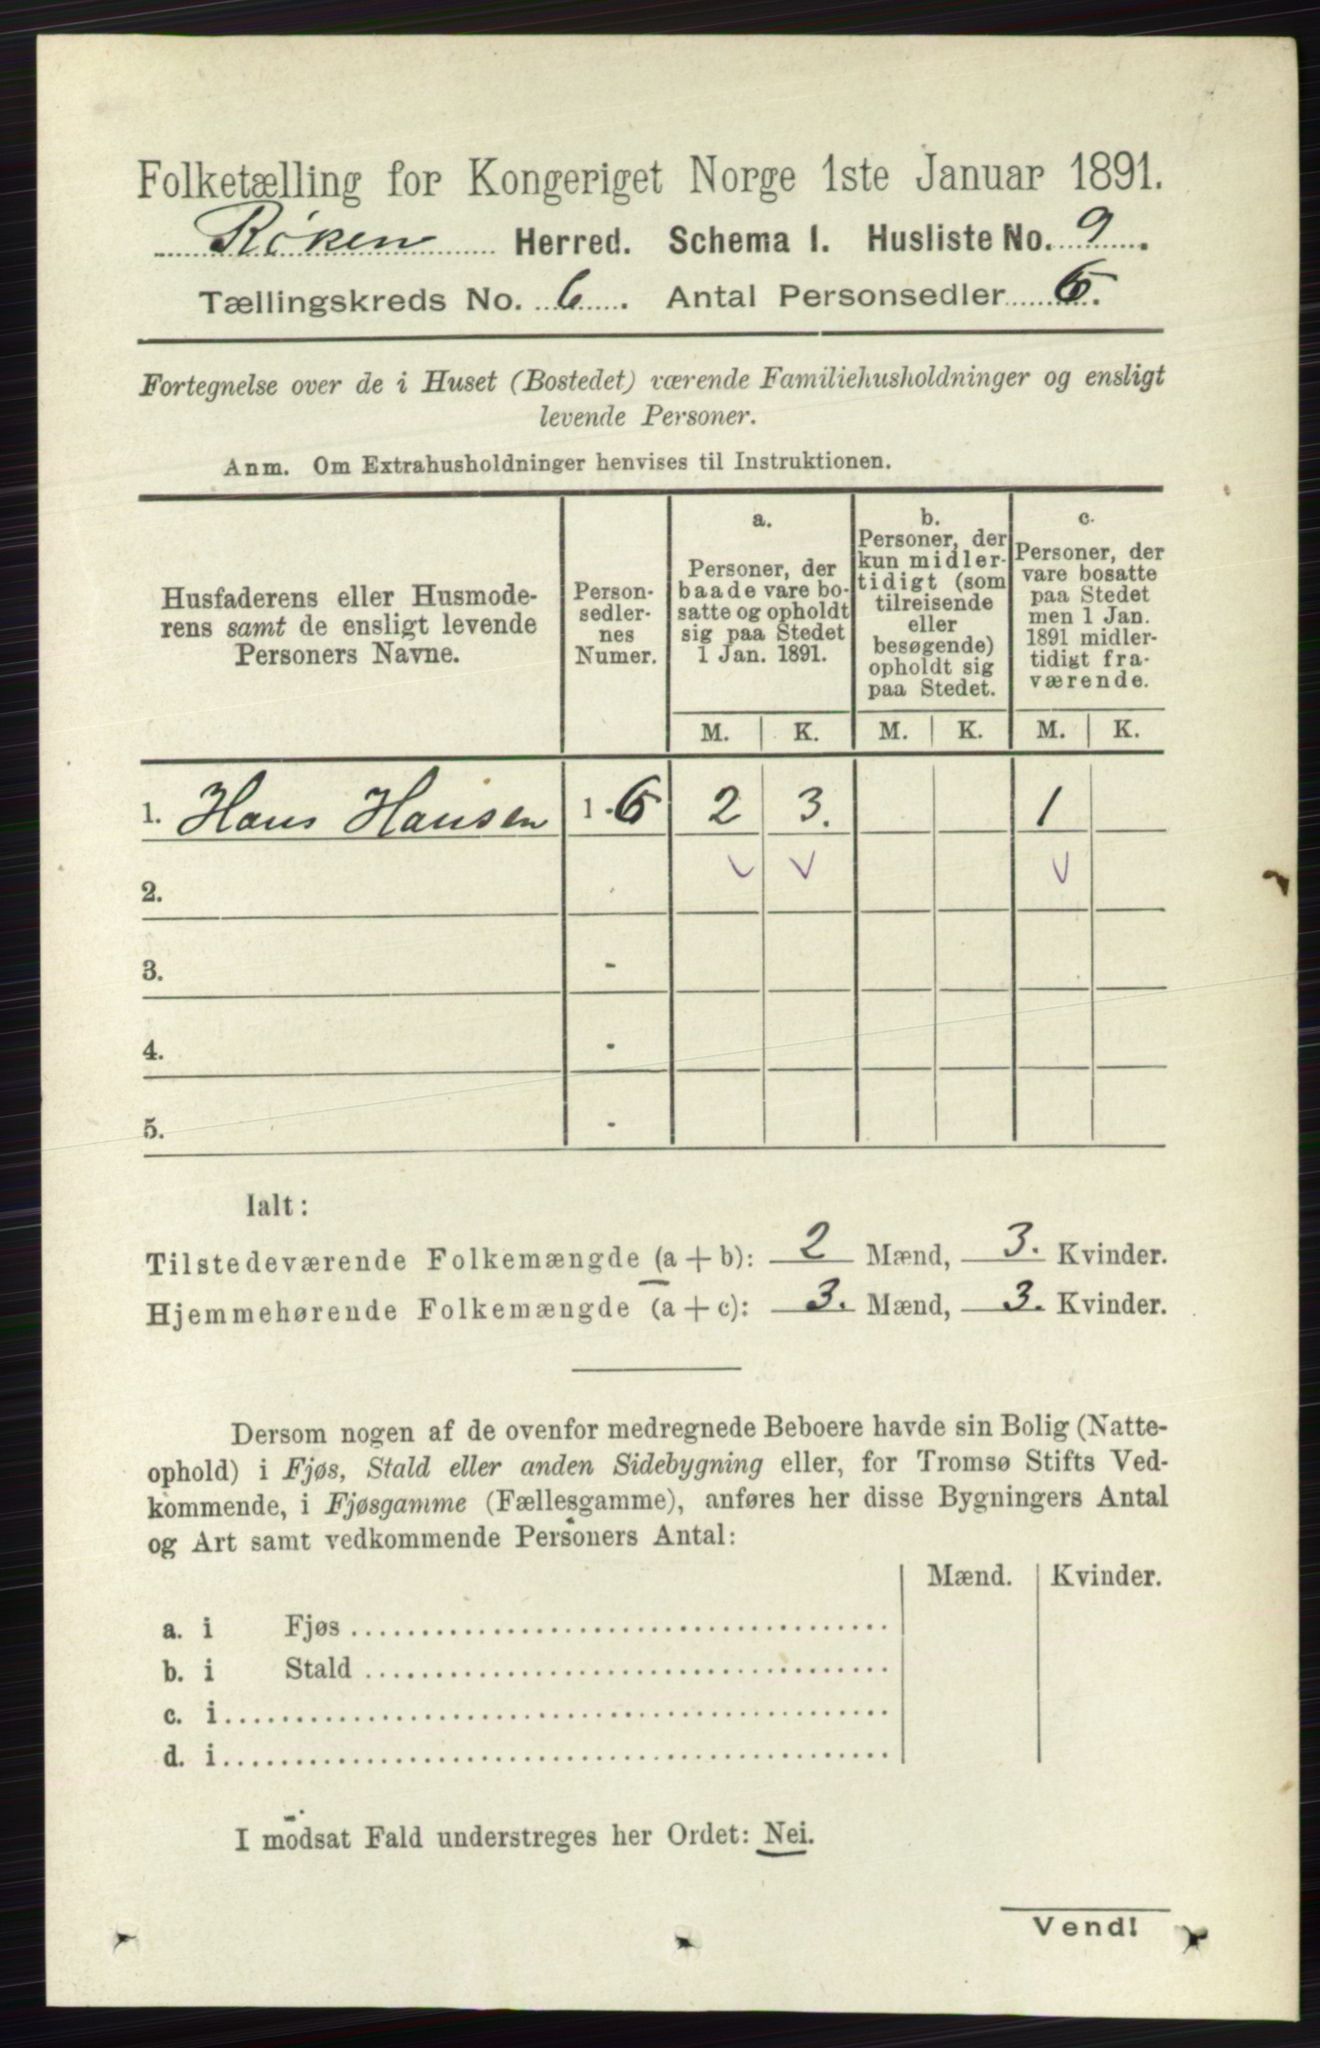 Folketælling for Kongeriget Norge 1ste Januar 1891.
Røken Herred. Schema I. Husliste No. 9.
Tællingskreds No. 6. Antal Personsedler 6.
Fortegnelse over de i Huset (Bostedet) værende Familiehusholdninger og ensligt
levende Personer.
Anm. Om Extrahusholdninger henvises til Instruktionen.
Husfaderens eller Husmode-
rens samt de ensligt levende
Personers Navne.
Person-
sedler-
nes
Numer.
a.
Personer, der
baade vare bo-
satte og opholdt
sig paa Stedet
1 Jan. 1891.
b.
Personer, der
kun midler-
tidigt (som
tilreisende
eller
besøgende)
opholdt sig
paa Stedet.
c.
Personer, der
vare bosatte
paa Stedet
men 1 Jan.
1891 midler-
tidigt fra-
værende.
M. K. M. K. M. K.
1. Hans Hansen 1 - 6 2 3. 1
2.
3. -
4. -
5. -
Ialt:
Tilstedeværende Folkemængde (a + b): 2 Mænd, 3. Kvinder.
Hjemmehørende Folkemængde (a + c): 3. Mænd, 3. Kvinder.
Dersom nogen af de ovenfor medregnede Beboere havde sin Bolig (Natte-
ophold) i Fjøs, Stald eller anden Sidebygning eller, for Tromsø Stifts Ved-
kommende, i Fjøsgamme (Fællesgamme), anføres her disse Bygningers Antal
og Art samt vedkommende Personers Antal:
Mænd. Kvinder.
a. i Fjøs
b. i Stald
c. i
d. i
I modsat Fald understreges her Ordet: Nei.
Vend!